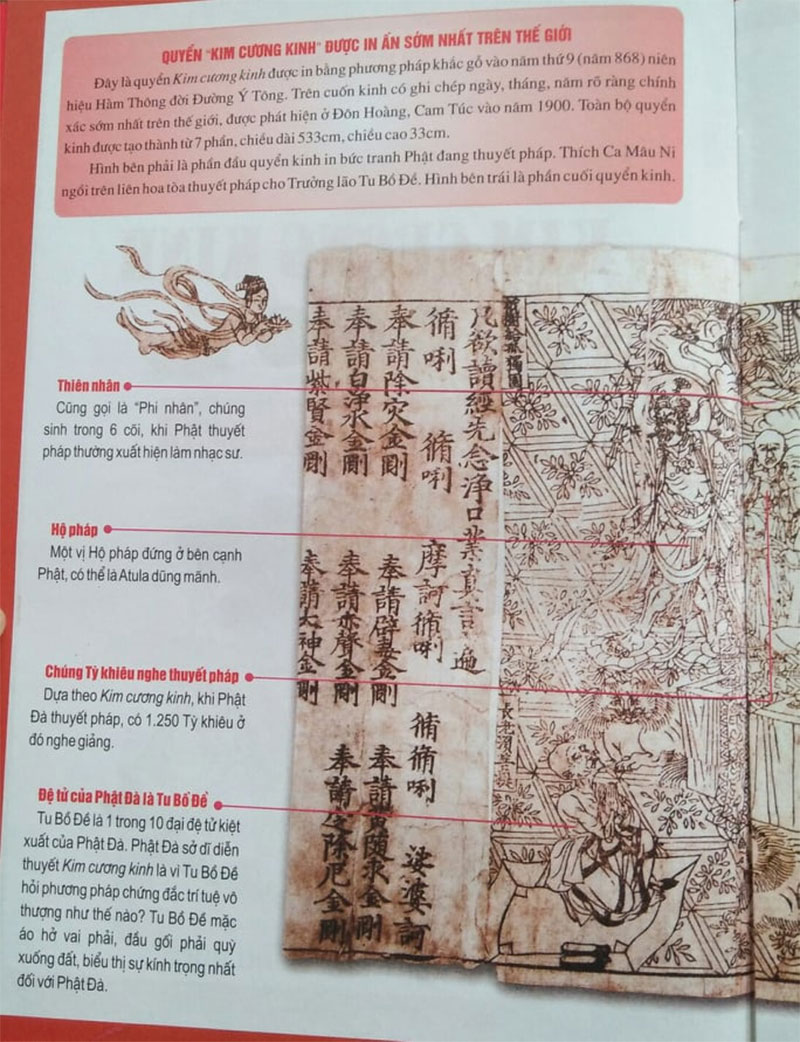 QUYỂN "KIM CƯƠNG KINH" ĐƯỢC IN ẤN SỚM NHẤT TRÊN THẾ GIỚI
Đây là quyển Kim cương kinh được in bằng phương pháp khắc gỗ vào năm thứ 9 (năm 868) niên
hiệu Hàm Thông đời Đường Ý Tông. Trên cuốn kinh có ghi chép ngày, tháng, năm rõ ràng chính
xác sớm nhất trên thế giới, được phát hiện ở Đôn Hoàng, Cam Túc vào năm 1900. Toàn bộ quyển
kinh được tạo thành từ 7 phần, chiều dài 533cm, chiều cao 33cm.
Hình bên phải là phần đầu quyển kinh in bức tranh Phật đang thuyết pháp. Thích Ca Mâu Ni
ngồi trên liên hoa tòa thuyết pháp cho Trưởng lão Tu Bồ Đề. Hình bên trái là phần cuối quyển kinh.
Thiên nhân
Cũng gọi là "Phi nhân", chúng
sinh trong 6 cõi, khi Phật thuyết
pháp thường xuất hiện làm nhạc sư.
Hộ pháp
Một vị Hộ pháp đứng ở bên cạnh
Phật, có thể là Atula dũng mãnh.
Chúng Tỳ khiêu nghe thuyết pháp
Dựa theo Kim cương kinh, khi Phật
Đà thuyết pháp, có 1.250 Tỳ khiêu ở
đó nghe giảng.
Đệ tử của Phật Đà là Tu Bồ Đề
Tu Bồ Đề là 1 trong 10 đại đệ tử kiệt
xuất của Phật Đà. Phật Đà sở dĩ diễn
thuyết Kim cương kinh là vì Tu Bồ Đề
hỏi phương pháp chứng đắc trí tuệ vô
thượng như thế nào? Tu Bồ Đề mặc
áo hở vai phải, đầu gối phải quỳ
xuống đất, biểu thị sự kính trọng nhất
đối với Phật Đà.
凡欲讀經先念淨口業真言一遍
脩唎 脩唎 摩訶脩唎 脩脩唎 娑婆訶
奉請除灾金剛 奉請辟毒金剛 奉請黃隨求金剛
奉請白淨水金剛 奉請赤聲金剛 奉請定除厄金剛
奉請紫賢金剛 奉請大神金剛